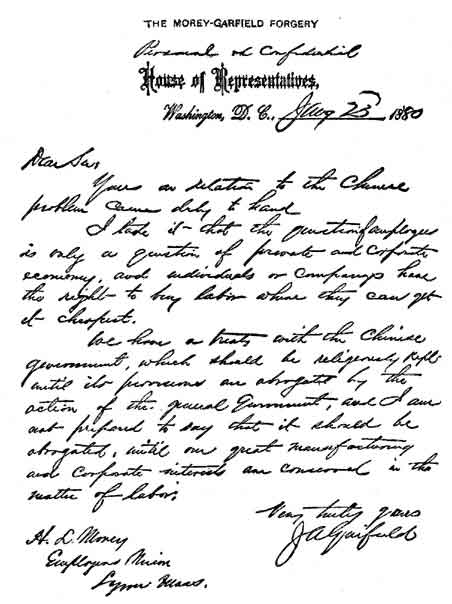 THE MOREY-GARFIELD FORGERY
Personal and Confidential
House of Representatives,
Washington, D. C., Jany 23 1880
Dear Sir
Yours in relation to the Chinese
problem came duly to hand
I take it that the question of employees
is only a question of private and corporate
economy, and individuals or companys have
the right to buy labor where they can get
it cheapest.
We have a treaty with the Chinese
government, which should be religiously kept
until its provisions are abrogated by the
action of the general Government, and I am
not prepared to say that it should be
abrogated, until our great manufacturing
and corporate interests are conserved in the
matter of labor.
Very truly yours
J A Garfield
H. L. Morey
Employers Union
Lynn Mass.